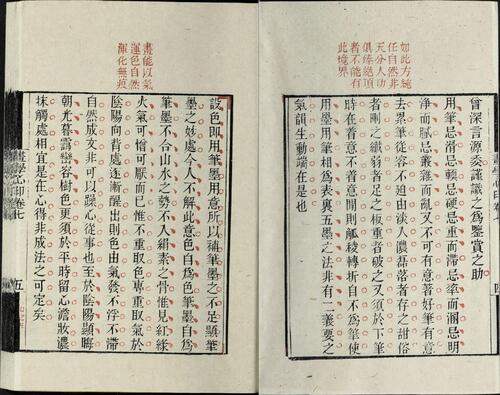 如此方純
任自然非
天分人功
俱臻絕頂
者不能有
此境界
曾深言源委謹識之為鑒賞之助
用筆忌滑忌軟忌硬忌重而滯忌率而溷忌明
淨而膩忌叢雜而亂又不可有意著好筆有意
去累筆從容不迫由淡入濃磊落者存之甜俗
者刪之纖弱者足之板重者破之又須於下筆
時在着意不着意間則觚稜轉折自不為筆使
用墨用筆相為表裏五墨之法非有二義要之
氣韻生動端在是也
畫能以氣
運色自然
渾化無痕
設色即用筆墨用意所以補筆墨之不足顯筆
墨之妙處今人不解此意色自為色筆墨自為
筆墨不合山水之勢不入絹素之骨惟見紅綠
火氣可憎可厭而已惟不重取色專重取氣於
陰陽向背處逐漸醒出則色由氣發不浮不滯
自然成文非可以躁心從事也至於陰陽顯晦
朝光暮靄巒容樹色更須於平時留心澹妝濃
抹觸處相宜是在心得非成法之可定矣
畫學心印卷七
五